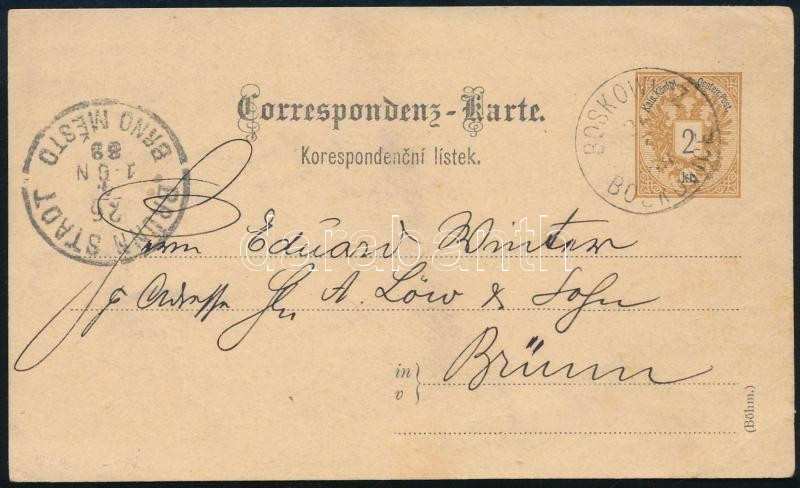 Correspondenz-Karte.
Korespondenční lístek.
Kais. Königl. Oesterr. Post.
2
kr.
BOSKOWITZ
BOSKOVICE
BRÜNN STADT
BRNO MĚSTO
26
1·N
89
Herrn Eduard Winter
pr Adresse Hn A. Löw & Sohn
in
v
Brünn
(Böhm.)
darabanth